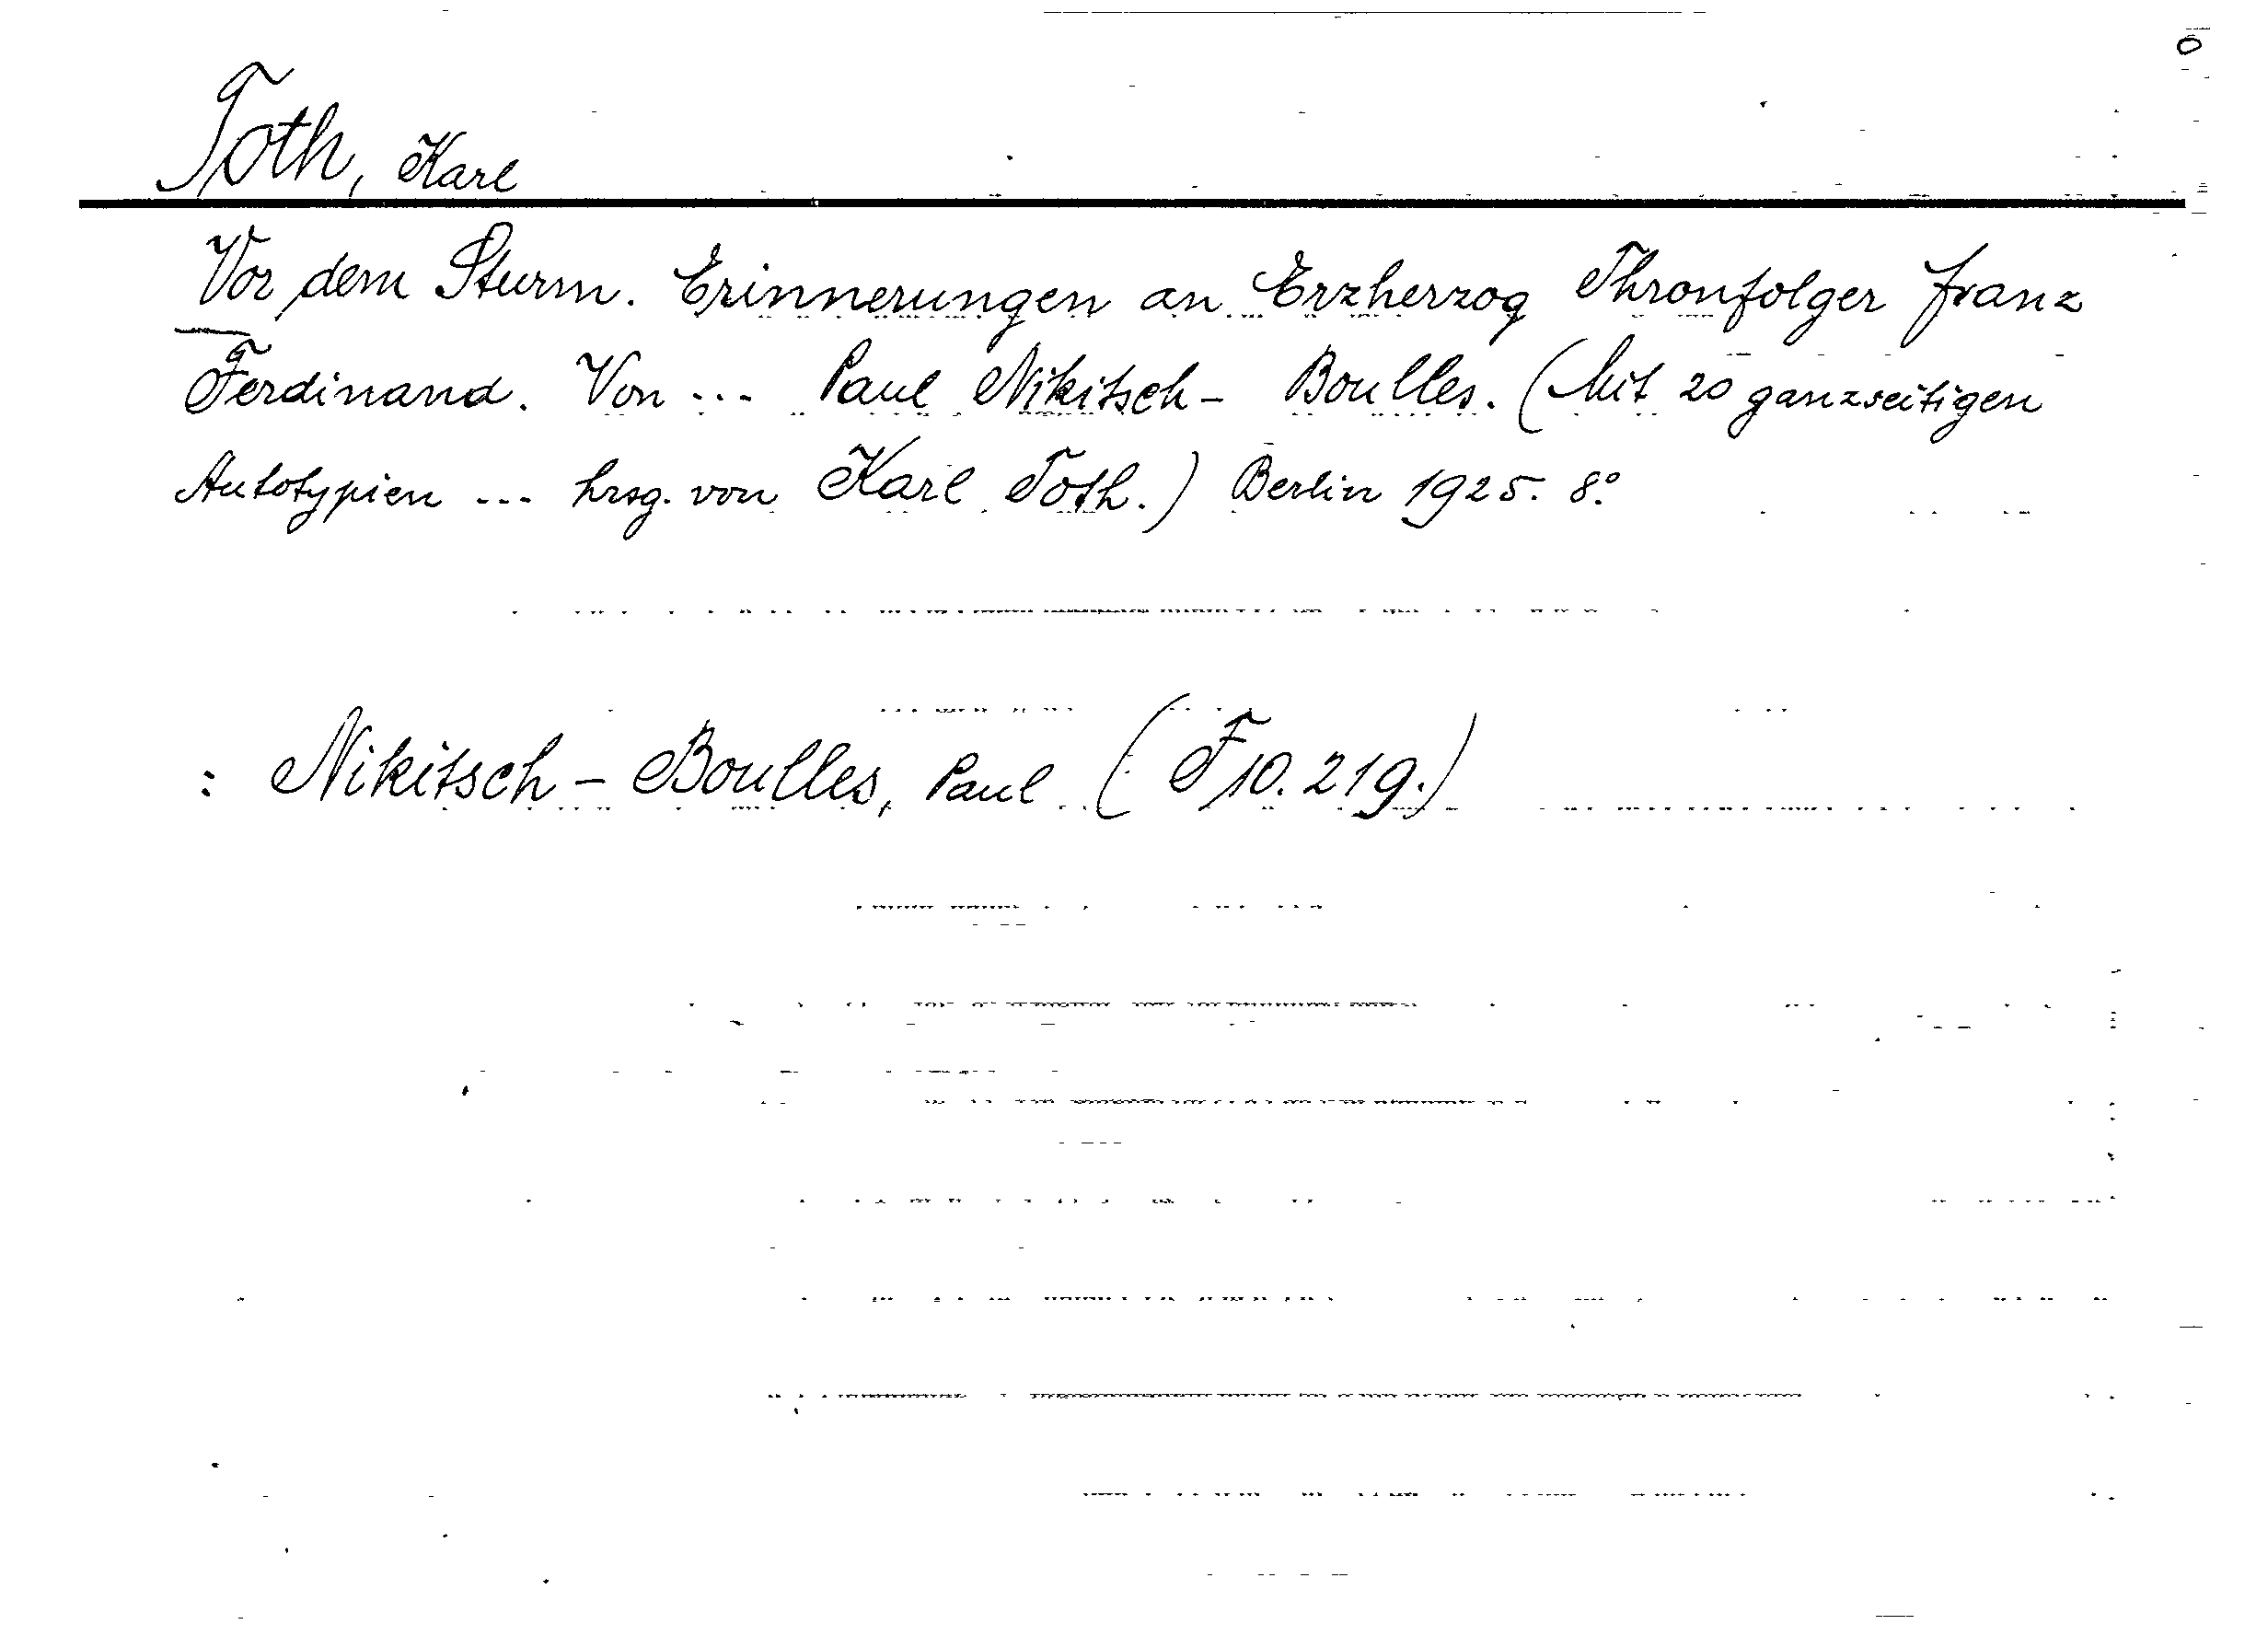 Toth, Karl
Vor dem Sturm. Erinnerungen an Erzherzog Thronfolger Franz
Ferdinand. Von ... Paul Nikitsch- Boulles. (Mit 20 ganzseitigen
Autotypien ... hrsg. von Karl Toth.) Berlin 1925. 8°.
: Nikitsch - Boulles, Paul (F10.219.)